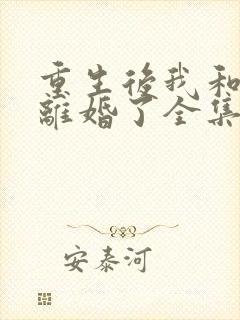 重生後我和
離婚了全集
安泰河